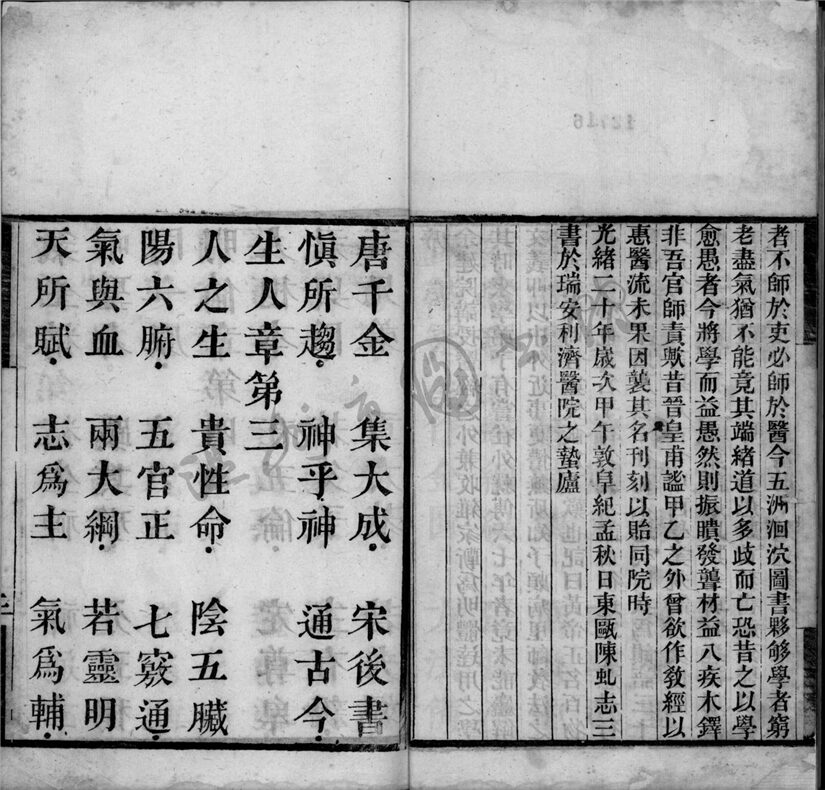 者不師於吏必師於醫今五洲洄泬圖書夥够學者窮
老盡氣猶不能竟其端緒道以多歧而亡恐昔之以學
愈愚者今將學而益愚然則振聵發聾材益八疾木鐸
非吾官師責歟昔晉皇甫謐甲乙之外曾欲作教經以
惠醫流未果因襲其名刊刻以貽同院時
光緒二十年歲次甲午敦阜紀孟秋日東甌陳虬志三
書於瑞安利濟醫院之蟄廬
唐千金 集大成 宋後書
愼所趨 神乎神 通古今
生人章第三
人之生 貴性命 陰五臟
陽六腑 五官正 七竅通
氣與血 兩大綱 若靈明
天所賦 志爲主 氣爲輔